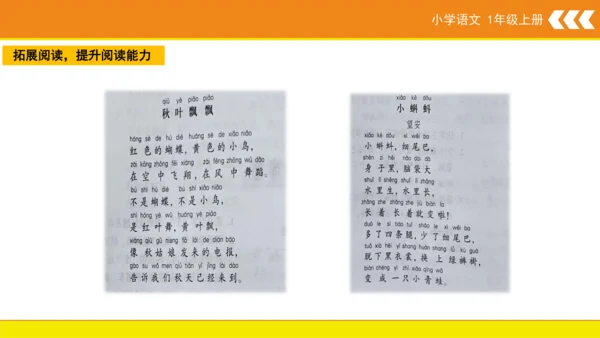 小学语文 1年级上册
拓展阅读，提升阅读能力
qiū yè piāo piāo
秋叶飘飘
hóng sè de hú dié huáng sè de xiǎo niǎo
红色的蝴蝶，黄色的小鸟，
zài kōng zhōng fēi xiáng zài fēng zhōng wǔ dǎo
在空中飞翔，在风中舞蹈。
bú shì hú dié bú shì xiǎo niǎo
不是蝴蝶，不是小鸟，
shì hóng yè wǔ huáng yè piāo
是红叶舞，黄叶飘，
xiàng qiū gū niang fā lái de diàn bào
像秋姑娘发来的电报，
gào su wǒ men qiū tiān yǐ jīng lái dào
告诉我们秋天已经来到。
xiǎo kē dǒu
小蝌蚪
望安
xiǎo kē dǒu xì wěi ba
小蝌蚪，细尾巴，
shēn zi hēi nǎo dai dà
身子黑，脑袋大
shuǐ lǐ shēng shuǐ lǐ zhǎng
水里生，水里长，
zhǎng zhe zhǎng zhe jiù biàn la
长着长着就变啦！
duō le sì tiáo tuǐ shǎo le xì wěi ba
多了四条腿，少了细尾巴，
tuō xià hēi yī shang huàn shang lǜ kù guà
脱下黑衣裳，换上绿裤褂，
biàn chéng yì zhī xiǎo qīng wā
变成一只小青蛙。